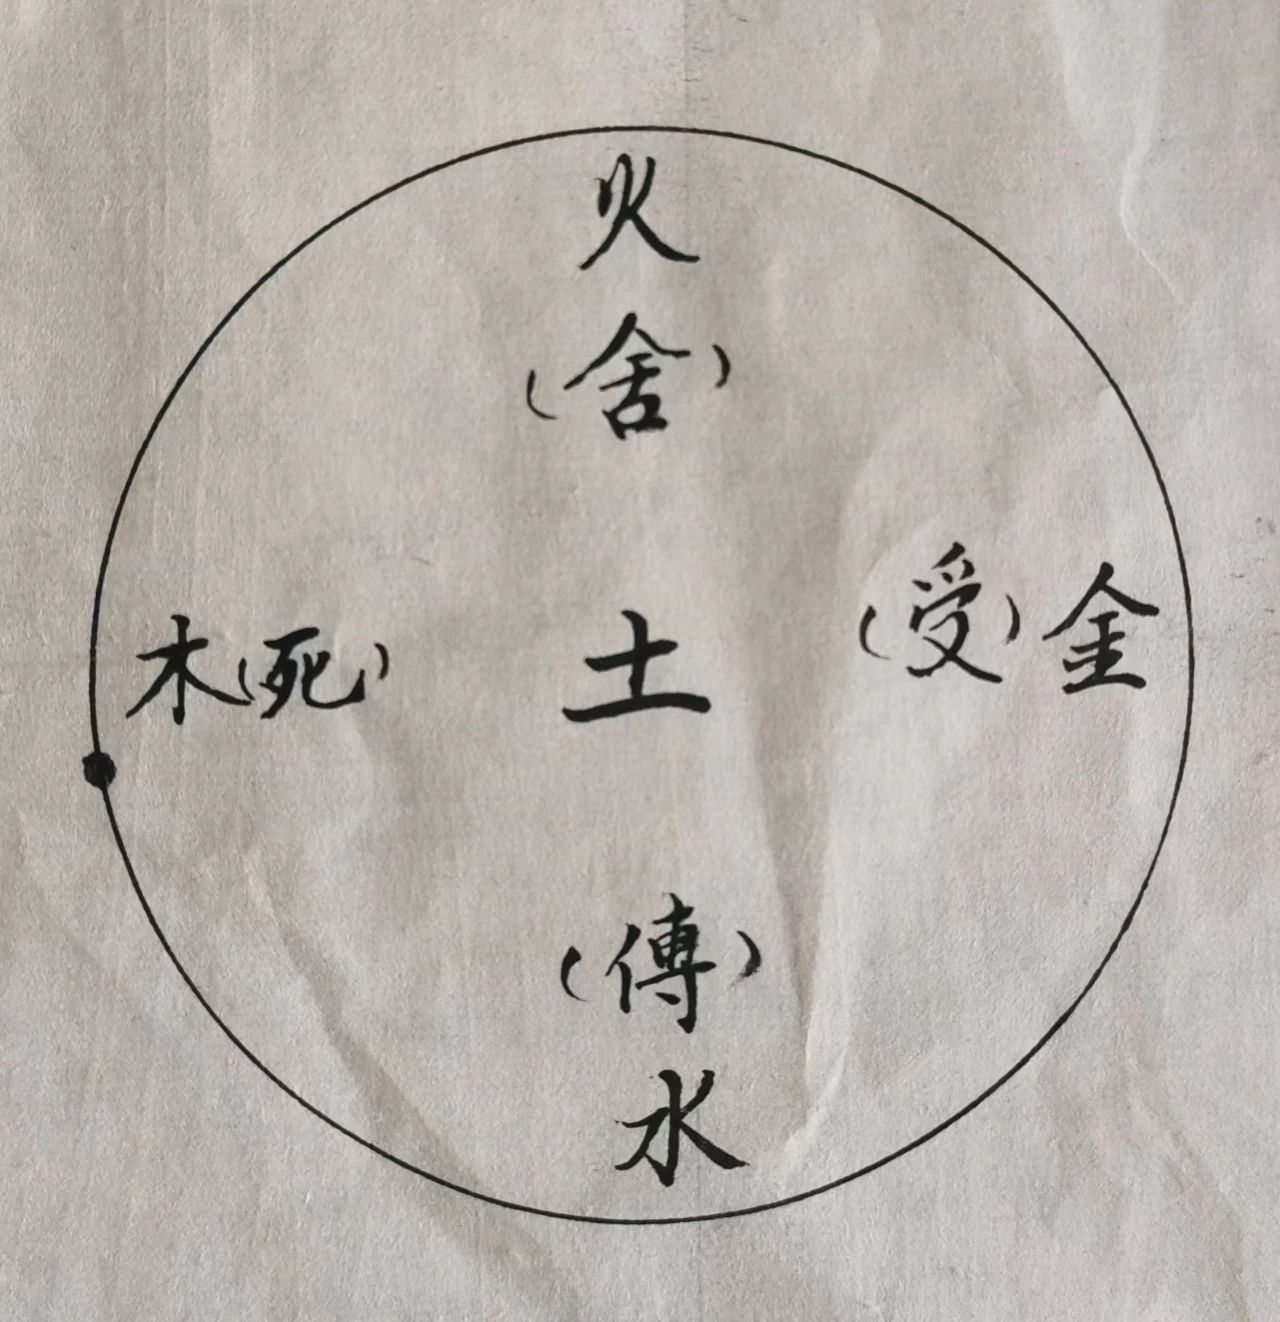 火
(舍)
木(死)
土
(受)金
(傅)
水